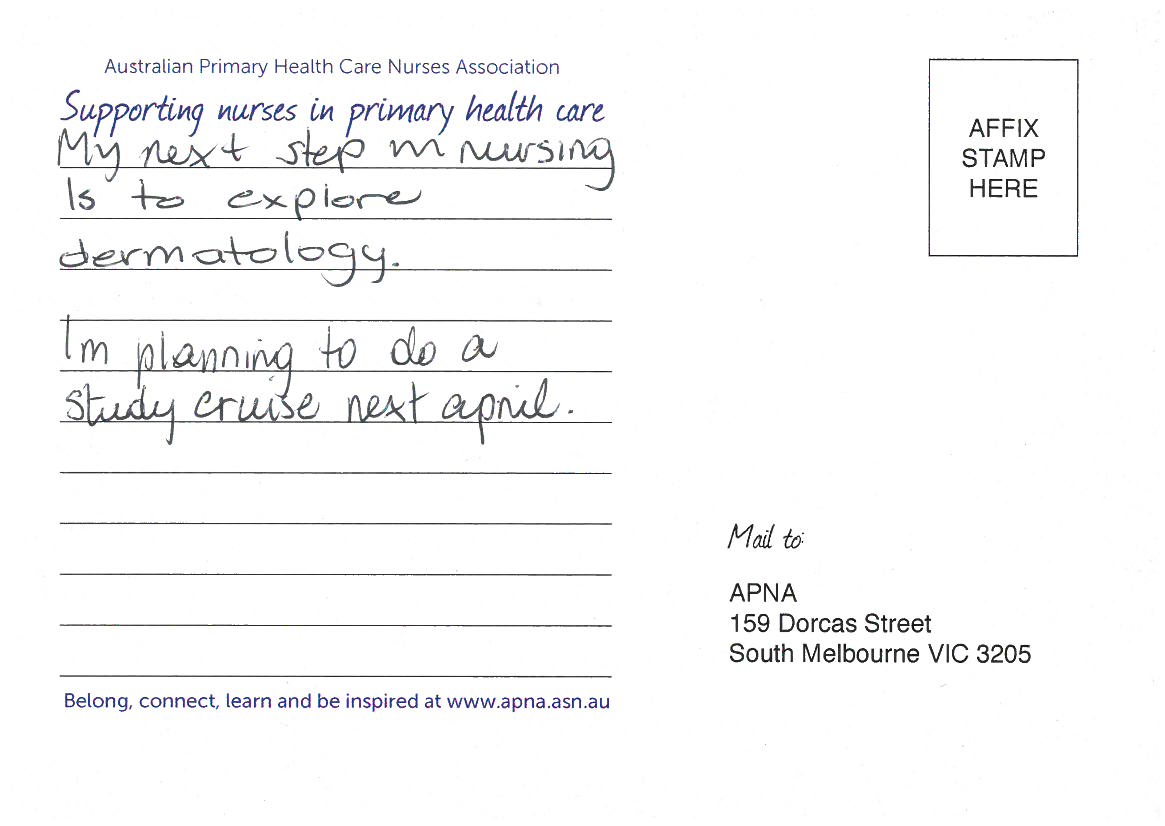 Australian Primary Health Care Nurses Association
Supporting nurses in primary health care
My next step in nursing
Is to explore
dermatology.
Im planning to do a
study cruise next april.
Belong, connect, learn and be inspired at www.apna.asn.au
AFFIX
STAMP
HERE
Mail to:
APNA
159 Dorcas Street
South Melbourne VIC 3205